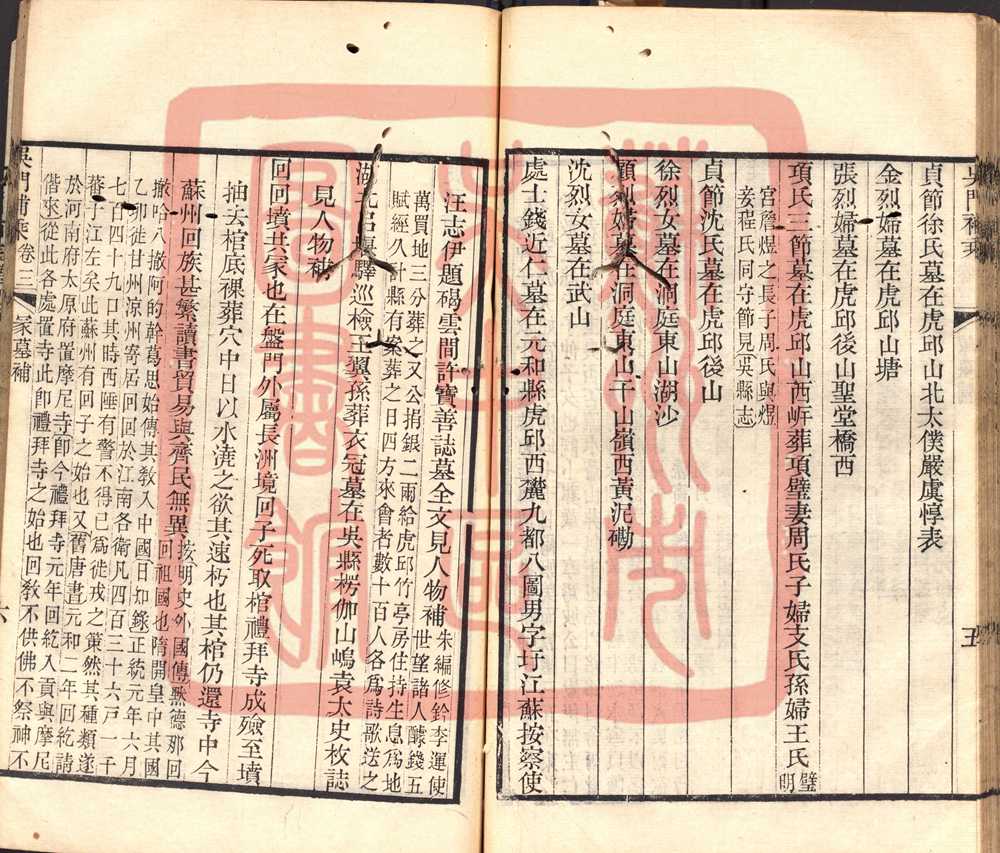 貞節徐氏墓在虎邱山北太僕嚴虞惇表
金烈婦墓在虎邱山塘
張烈婦墓在虎邱後山聖堂橋西
項氏三節墓在虎邱山西𡵆葬項璧妻周氏子婦支氏孫婦王氏璧明
宮詹煜之長子周氏與煜
妾程氏同守節見吳縣志
貞節沈氏墓在虎邱後山
徐烈女墓在洞庭東山湖沙
顧烈婦墓在洞庭東山干山嶺西黃泥磡
沈烈女墓在武山
處士錢近仁墓在元和縣虎邱西麓九都八圖男字圩江蘇按察使
五
汪志伊題碣雲間許寶善誌墓全文見人物補朱編修鈐李運使
世望諸人醵錢五
萬買地三分葬之又公捐銀二兩給虎邱竹亭房住持生息爲地
賦經久計縣有案葬之日四方來會者數十百人各爲詩歌送之
湖北呂堰驛巡檢王翼孫葬衣冠墓在吳縣楞伽山嶋袁太史枚誌
見人物補
回回墳其冢也在盤門外屬長洲境回子死取棺禮拜寺成殮至墳
抽去棺底裸葬穴中日以水澆之欲其速朽也其棺仍還寺中今
蘇州回族甚繁讀書貿易與齊民無異按明史外國傳默德那回
回祖國也隋開皇中其國
撒哈八撒阿的幹葛思始傳其教入中國日知錄正統元年六月
乙卯徙甘州涼州寄居回回於江南各衛凡四百三十六戶一千
七百四十九口其時西陲有警不得已爲徙戎之策然其種類遂
蕃于江左矣此蘇州有回子之始也又舊唐書元和二年回紇請
於河南府太原府置摩尼寺卽今禮拜寺元年回紇入貢與摩尼
偕來從此各處置寺此卽禮拜寺之始也回教不供佛不祭神不
吳門補乘卷三 冢墓補
六